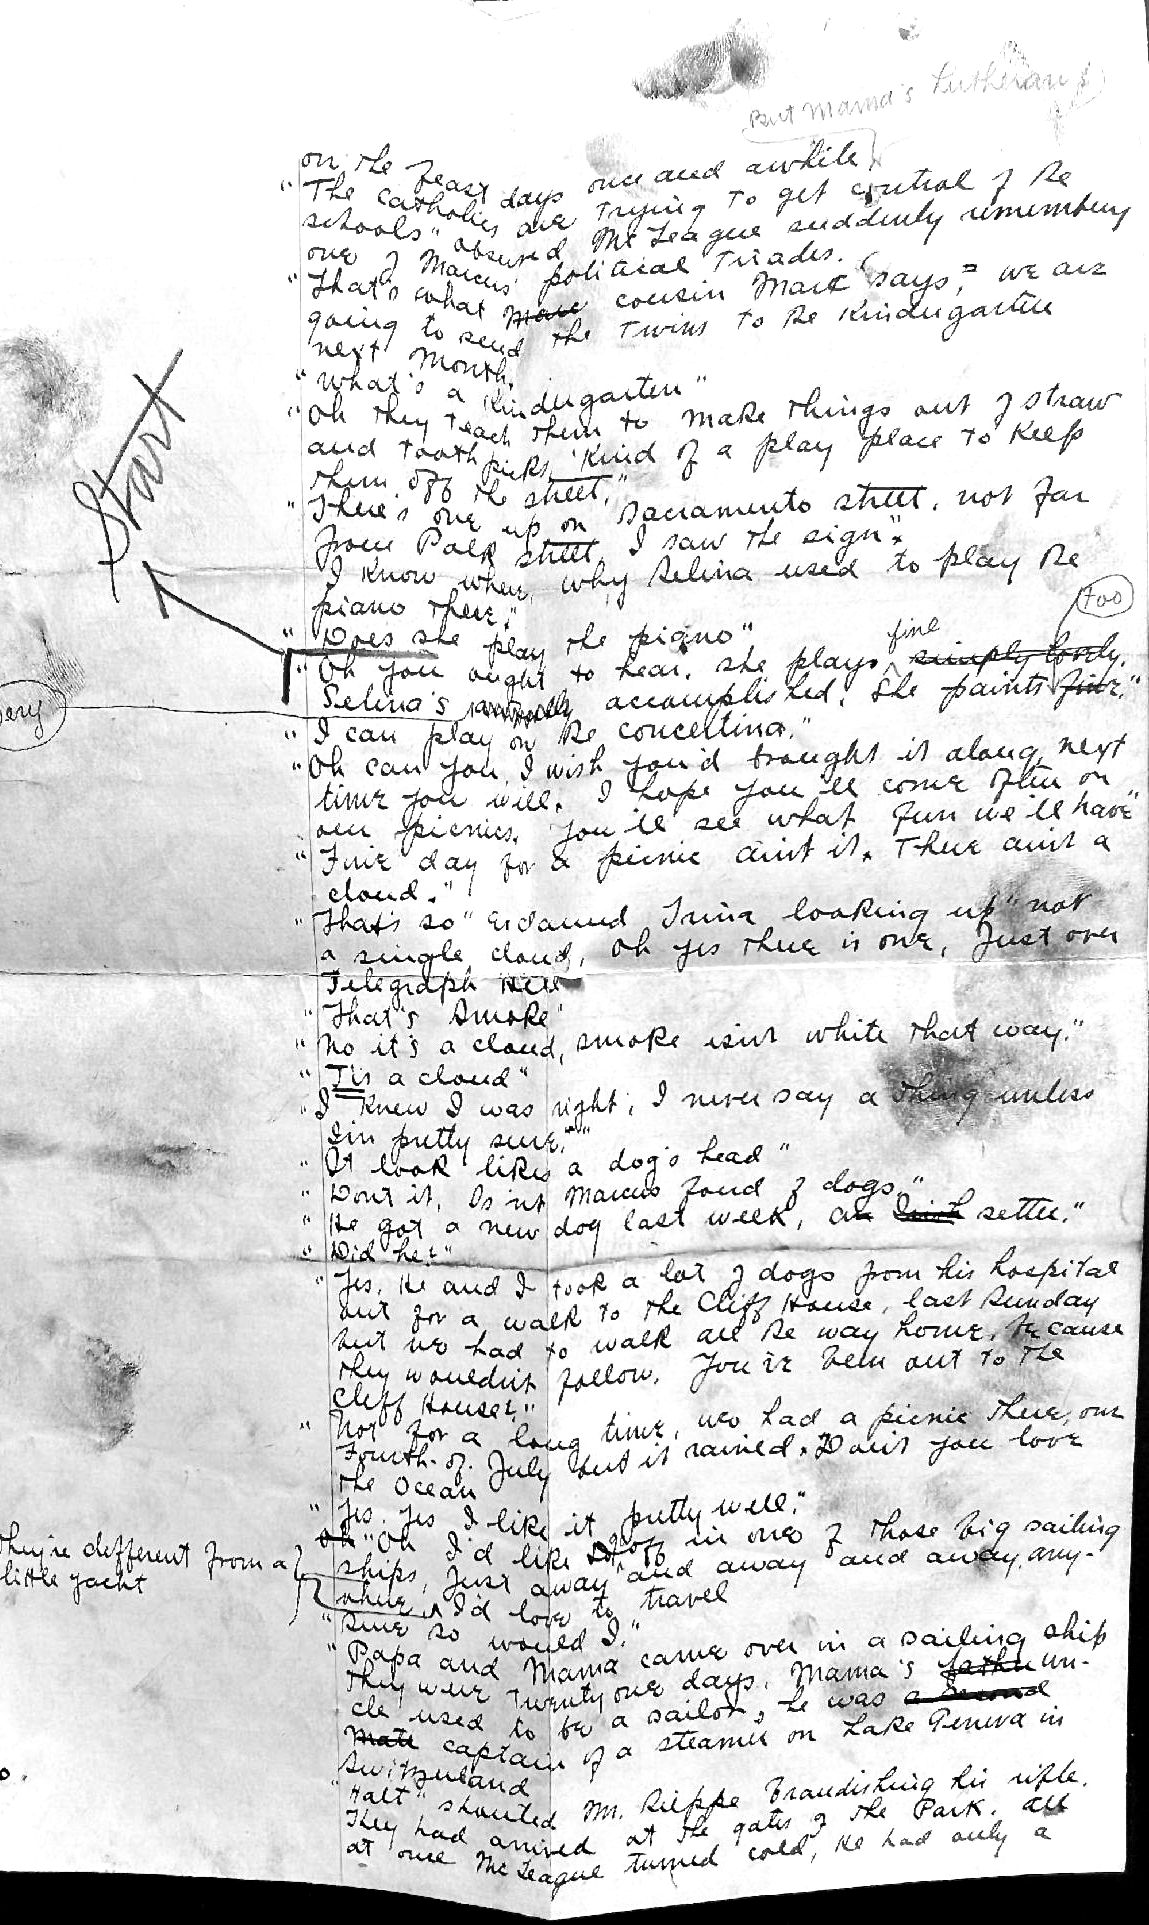 But Mama's Lutheran
on the feast days once and awhile
"The catholics are trying to get control of the
schools" observed McTeague suddenly remembering
one of Marcus' political tirades.
"That's what Marc cousin Mark says, we are
going to send the twins to the Kindergarten
next month.
"What's a Kindergarten"
"Oh they teach them to make things out of straw
and tooth picks, Kind of a play place to keep
them off the street."
"There's one up on Sacramento street, not far
from Polk street, I saw the sign".
I know where, why Selina used to play the
piano there."
Start
"Does she play the piano"
too
fine
"Oh you ought to hear. she plays simply lovely.
Selina's accomplished. She paints fine."
"I can play on the concertina."
"Oh can you, I wish you'd brought it along, next
time you will. I hope you'll come often on
our picnics. You'll see what fun we'll have"
"Fine day for a picnic aint it. There aint a
cloud."
"That's so" exclaimed Trina looking up "not
a single cloud, oh yes there is one, Just over
Telegraph Hill
"That's smoke"
"No it's a cloud, smoke isnt white that way."
"Tis a cloud"
"I knew I was right, I never say a thing unless
I'm pretty sure."
"It look like a dog's head"
"Dont it, Is'nt Marcus fond of dogs."
"He got a new dog last week, an Irish setter."
"Did he?"
"Yes, He and I took a lot of dogs from his hospital
out for a walk to the Cliff House, last Sunday
but we had to walk all the way home, because
they wouldnt follow. You've been out to the
Cliff House?"
"Not for a long time, we had a picnic there, one
Fourth-of-July but it rained. Don't you love
the Ocean
"Yes. Yes I like it pretty well."
Oh "Oh I'd like to go off in one of those big sailing
ships, Just away and away and away, any-
where I'd love to travel
they're different from a
little yacht
"Sure so would I."
"Papa and Mama came over in a sailing ship
They were twenty one days. Mama's father un-
cle used to be a sailor, he was a second
mate captain of a steamer on Lake Geneva in
Switzerland
"Halt" shouted Mr. Sieppe brandishing his rifle.
They had arrived at the gates of the Park. all
at once McTeague turned cold, He had only a